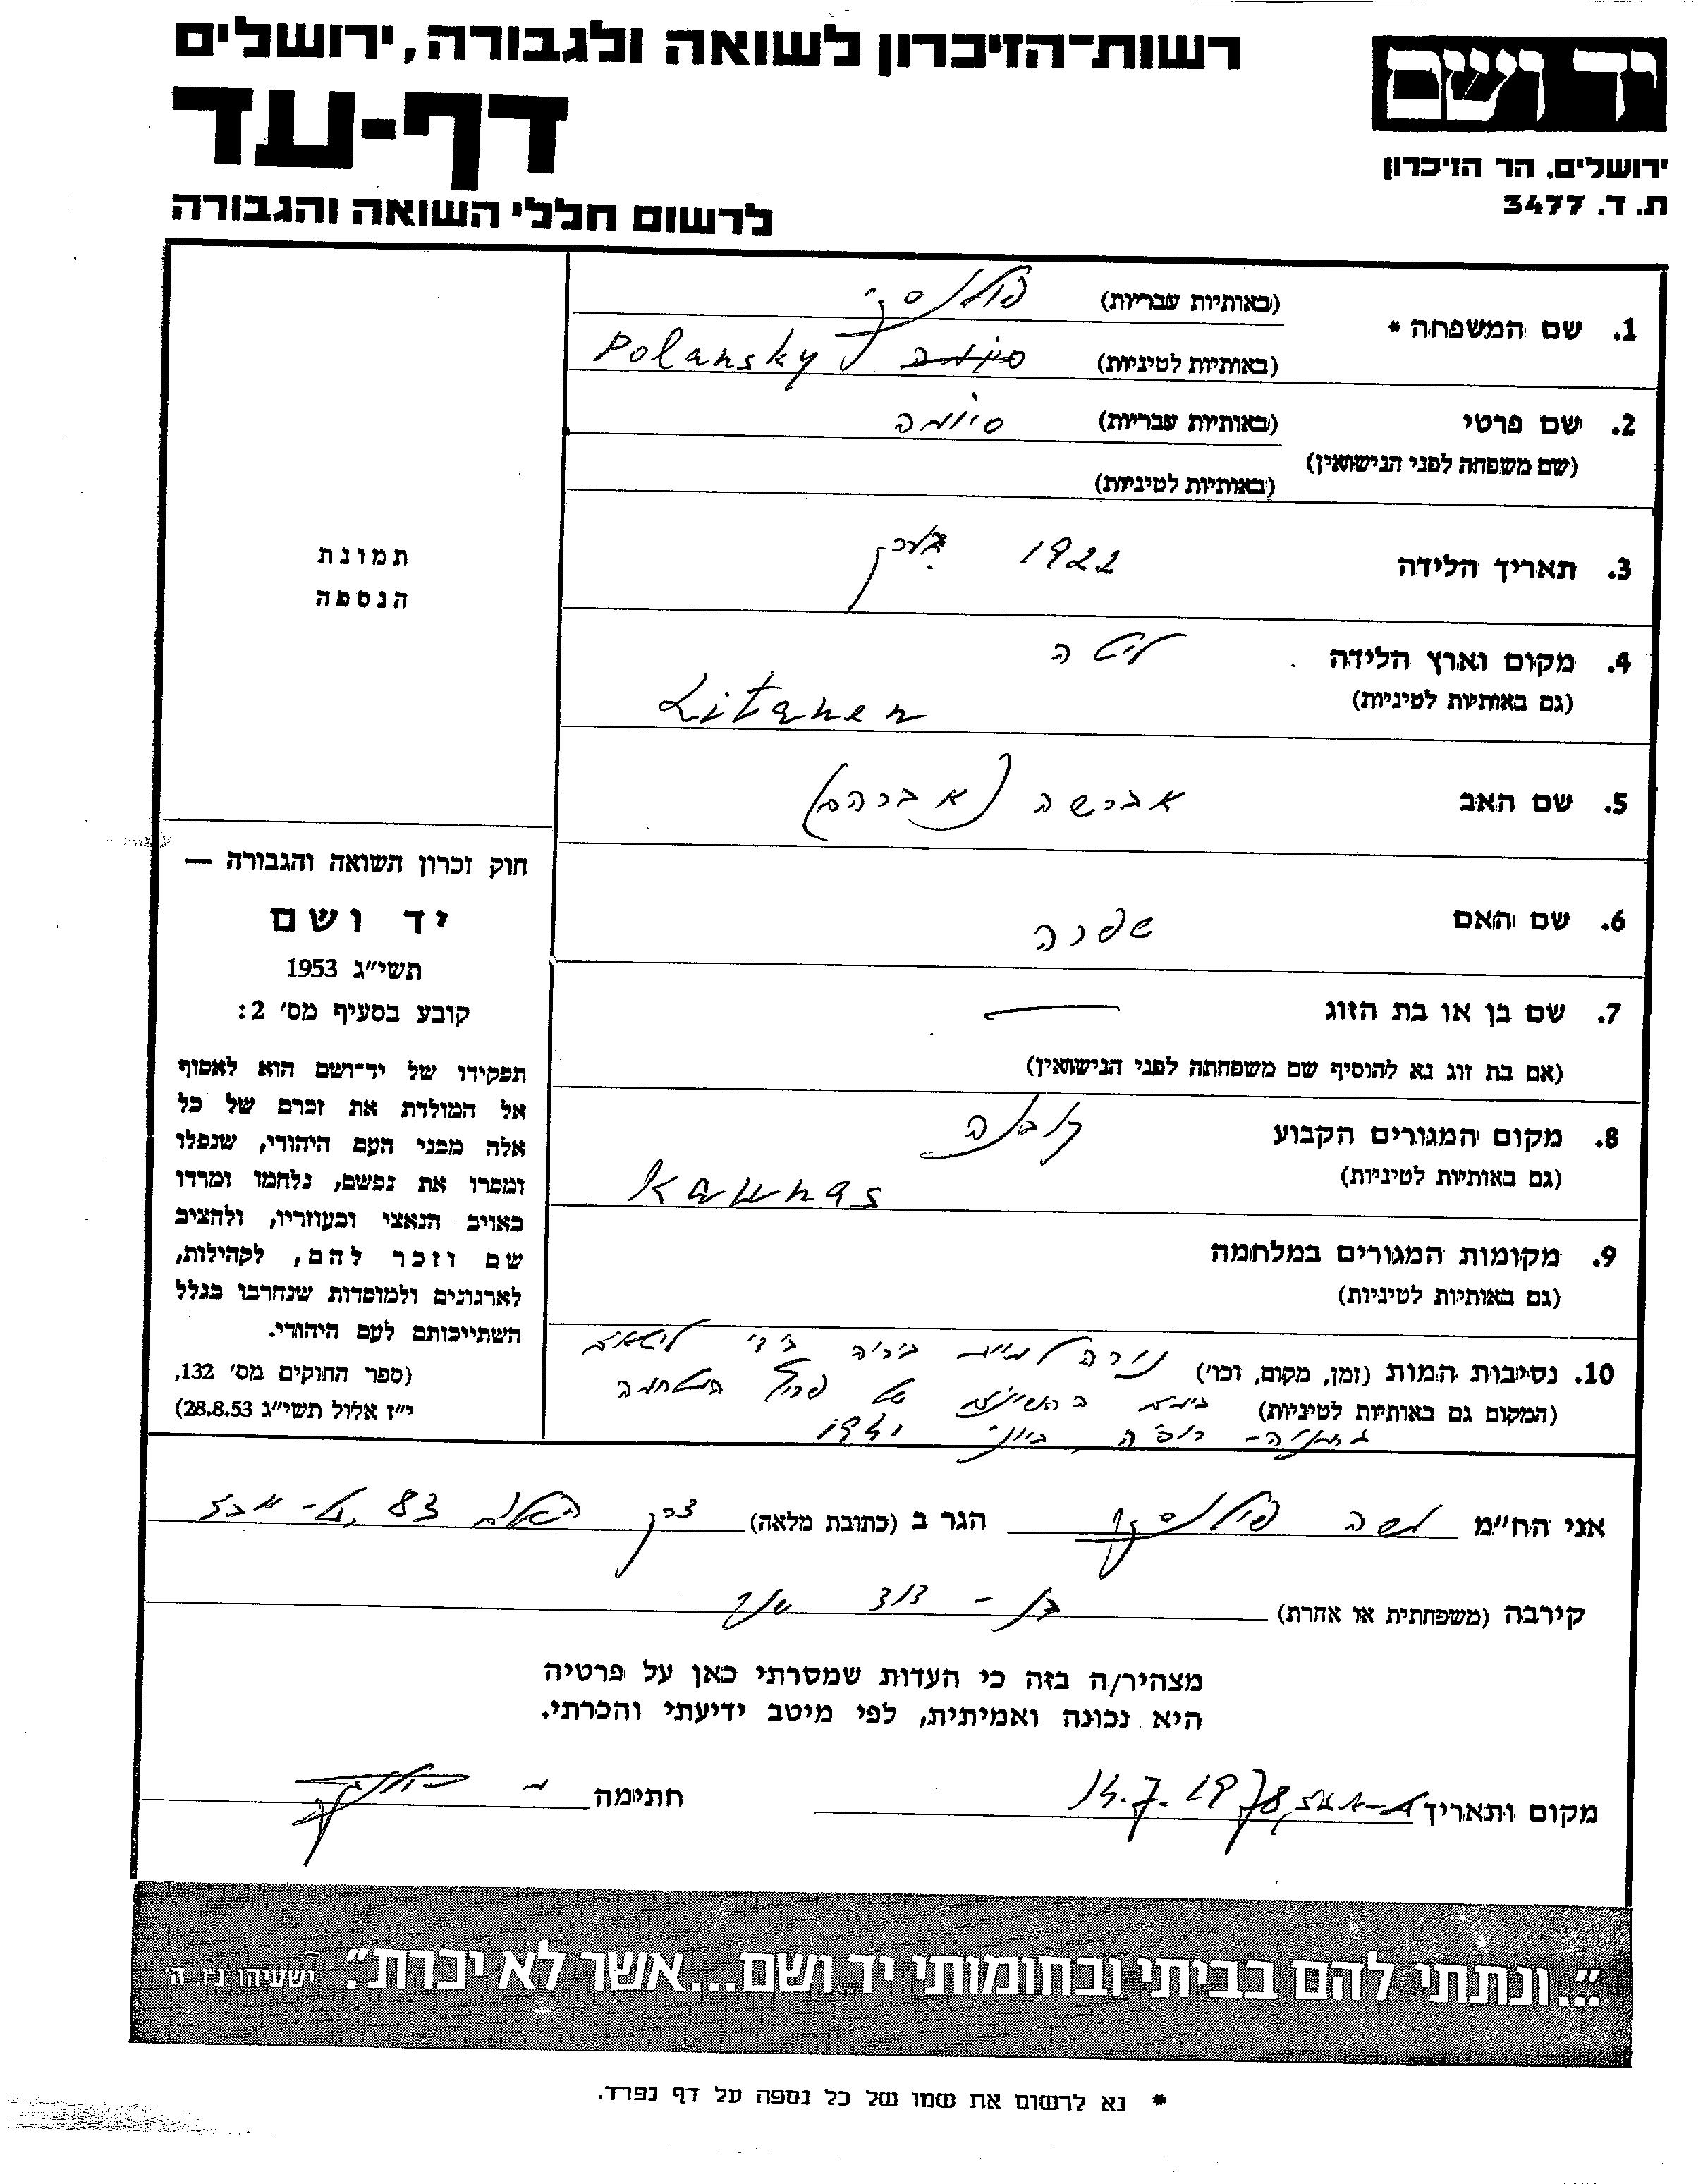 רשות־הזיכרון לשואה ולגבורה, ירושלים
יד ושם
דף-עד
ירושלים, הר הזיכרון
ת. ד. 3477
לרשום חללי השואה והגבורה
1. שם המשפחה *
(באותיות עבריות) פולנסקי
(באותיות לטיניות) סיומה Polansky
2. שם פרטי (באותיות עבריות) סיומה
(שם משפחה לפני הנישואין)
(באותיות לטיניות)
3. תאריך הלידה 1922 בערך
4. מקום וארץ הלידה ליטה
(גם באותיות לטיניות) Litauen
5. שם האב אברשה (אברהם)
6. שם האם שפרה
7. שם בן או בת הזוג —
(אם בת זוג נא להוסיף שם משפחתה לפני הנישואין)
8. מקום המגורים הקבוע קובנה
(גם באותיות לטיניות) Kaunas
9. מקומות המגורים במלחמה
(גם באותיות לטיניות)
10. נסיבות המות (זמן, מקום, וכו') נורה למוות ביריה ע"י ליטאים
(המקום גם באותיות לטיניות) ביום השני של פרוץ המלחמה
גרמניה - רוסיה, ביוני 1941
תמונת
הנספה
חוק זכרון השואה והגבורה —
יד ושם
תשי"ג 1953
קובע בסעיף מס' 2:
תפקידו של יד־ושם הוא לאסוף
אל המולדת את זכרם של כל
אלה מבני העם היהודי, שנפלו
ומסרו את נפשם, נלחמו ומרדו
באויב הנאצי ובעוזריו, ולהציב
שם וזכר להם, לקהילות,
לארגונים ולמוסדות שנחרבו בגלל
השתייכותם לעם היהודי.
(ספר החוקים מס' 132,
י"ז אלול תשי"ג 28.8.53)
אני הח"מ משה פולנסקי הגר ב (כתובת מלאה) דרך השלום 83, ת-אביב
קירבה (משפחתית או אחרת) בן - דוד שני
מצהיר/ה בזה כי העדות שמסרתי כאן על פרטיה
היא נכונה ואמיתית, לפי מיטב ידיעתי והכרתי.
מקום ותאריך ת-אביב, 14.7.1978 חתימה מ פולנסקי
"...ונתתי להם בביתי ובחומותי יד ושם...אשר לא יכרת". ישעיהו נ"ו, ה'
* נא לרשום את שמו של כל נספה על דף נפרד.